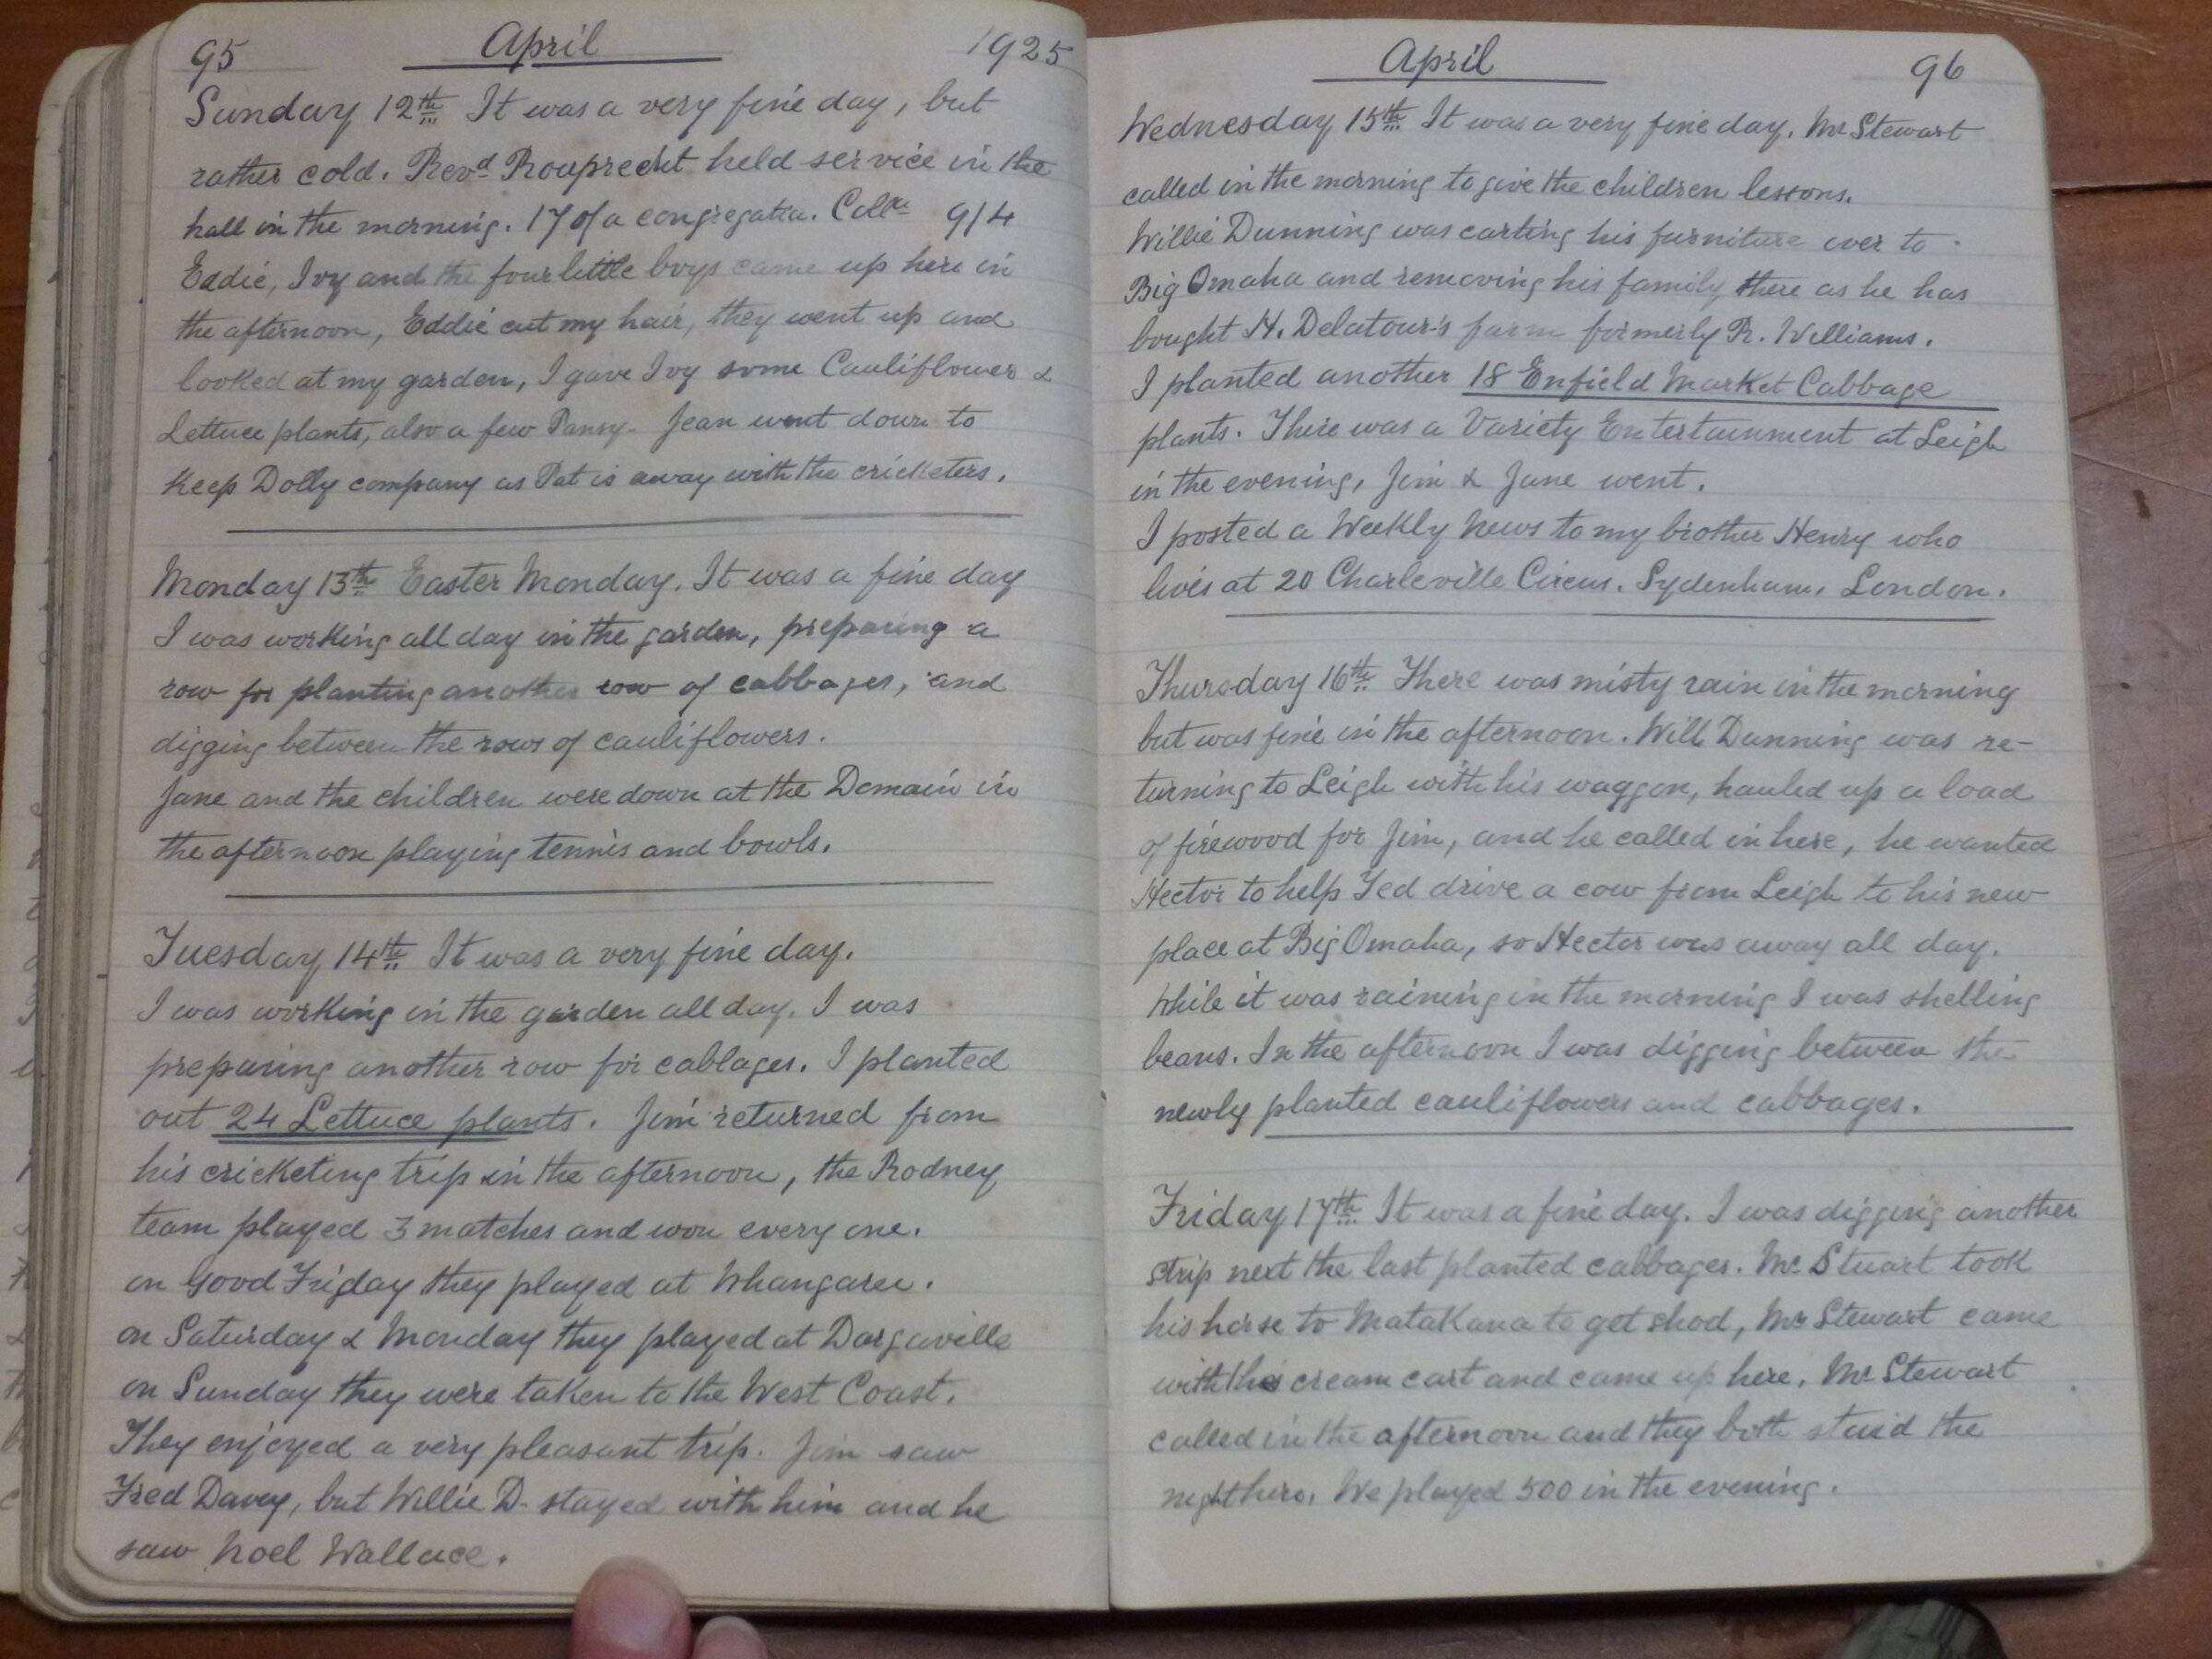 95 April 1925
Sunday 12th It was a very fine day, but
rather cold. Revd Rouprecht held service in the
hall in the morning. 17 of a congregatn. Colln 9/4
Eddie, Ivy and the four little boys came up here in
the afternoon, Eddie cut my hair, they went up and
looked at my garden, I gave Ivy some Cauliflower &
Lettuce plants, also a few Pansy - Jean went down to
keep Dolly company as Pat is away with the cricketers.
Monday 13th Easter Monday. It was a fine day
I was working all day in the garden, preparing a
row for planting another row of cabbages, and
digging between the rows of cauliflowers.
Jane and the children were down at the Domain in
the afternoon playing tennis and bowls.
Tuesday 14th It was a very fine day.
I was working in the garden all day. I was
preparing another row for cabbages. I planted
out 24 Lettuce plants. Jim returned from
his cricketing trip in the afternoon, the Rodney
team played 3 matches and won every one.
on Good Friday they played at Whangarei.
on Saturday & Monday they played at Dargaville
on Sunday they were taken to the West Coast.
They enjoyed a very pleasant trip. Jim saw
Fred Davey, but Willie D- stayed with him and he
saw Noel Wallace.
April 96
Wednesday 15th It was a very fine day. Mr Stewart
called in the morning to give the children lessons.
Willie Dunning was carting his furniture over to
Big Omaha and removing his family there as he has
bought H. Delatour's farm formerly R. Williams.
I planted another 18 Enfield Market Cabbage
plants. There was a Variety Entertainment at Leigh
in the evening, Jim & Jane went.
I posted a Weekly News to my brother Henry who
lives at 20 Charleville Circus. Sydenham, London.
Thursday 16th There was misty rain in the morning
but was fine in the afternoon. Will Dunning was re-
turning to Leigh with his waggon, hauled up a load
of firewood for Jim, and he called in here, he wanted
Hector to help Ted drive a cow from Leigh to his new
place at Big Omaha, so Hector was away all day.
While it was raining in the morning I was shelling
beans. In the afternoon I was digging between the
newly planted cauliflowers and cabbages.
Friday 17th It was a fine day. I was digging another
strip next the last planted cabbages. Mr Stuart took
his horse to Matakana to get shod, Mr Stewart came
with the cream cart and came up here. Mr Stewart
called in the afternoon and they both staid the
night here. We played 500 in the evening.